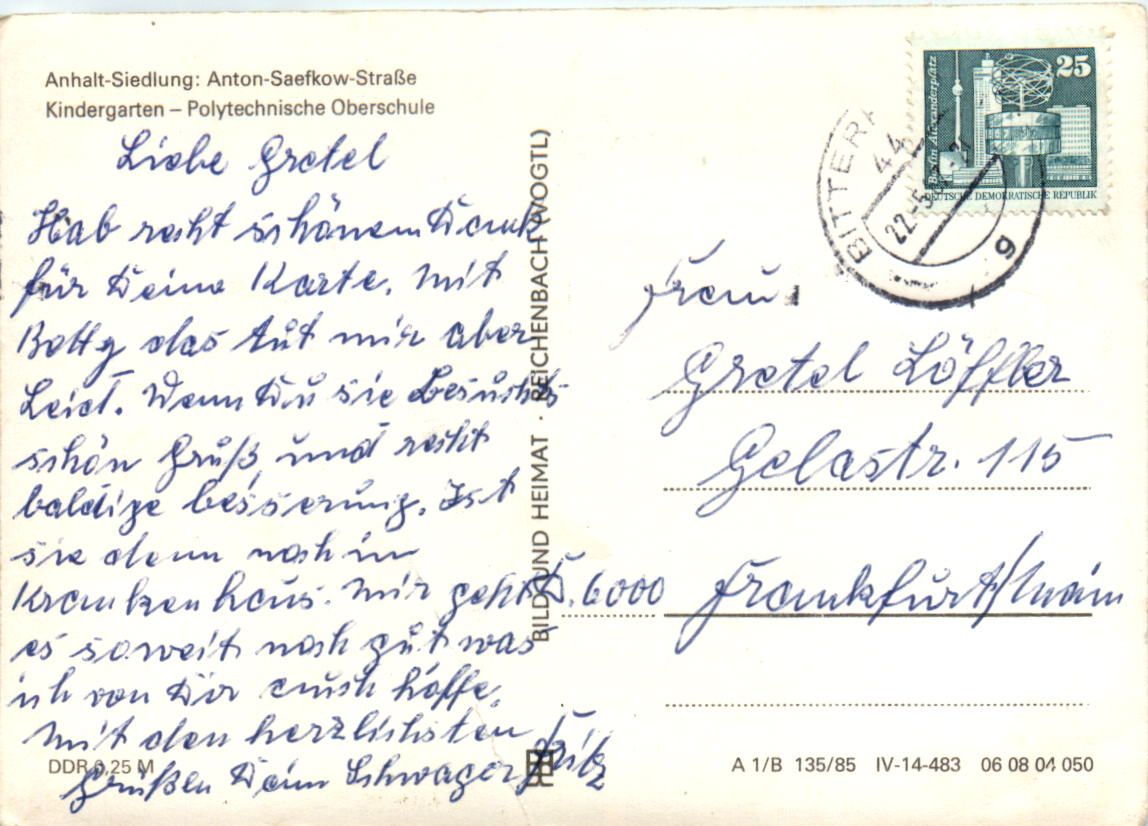 Anhalt-Siedlung: Anton-Saefkow-Straße
Kindergarten – Polytechnische Oberschule
Liebe Gretel
Hab recht schönen Dank
für Deine Karte. Mit
Betty das tut mir aber
Leid. Wenn Du sie Besuchst
schön Gruß, und recht
baldige besserung. Ist
sie denn noch im
Krankenhaus. Mir geht
es soweit noch gut was
ich von Dir auch hoffe.
Mit den herzlichsten
Grüßen Dein Schwager Fritz
DDR 0,25 M
BILD UND HEIMAT · REICHENBACH (VOGTL)
Berlin Alexanderplatz
25
DEUTSCHE DEMOKRATISCHE REPUBLIK
BITTERF
44
22.-5
g
Frau
Gretel Löffler
Gelastr. 115
D. 6000 Frankfurt/Main
A 1/B 135/85 IV-14-483 06 08 04 050